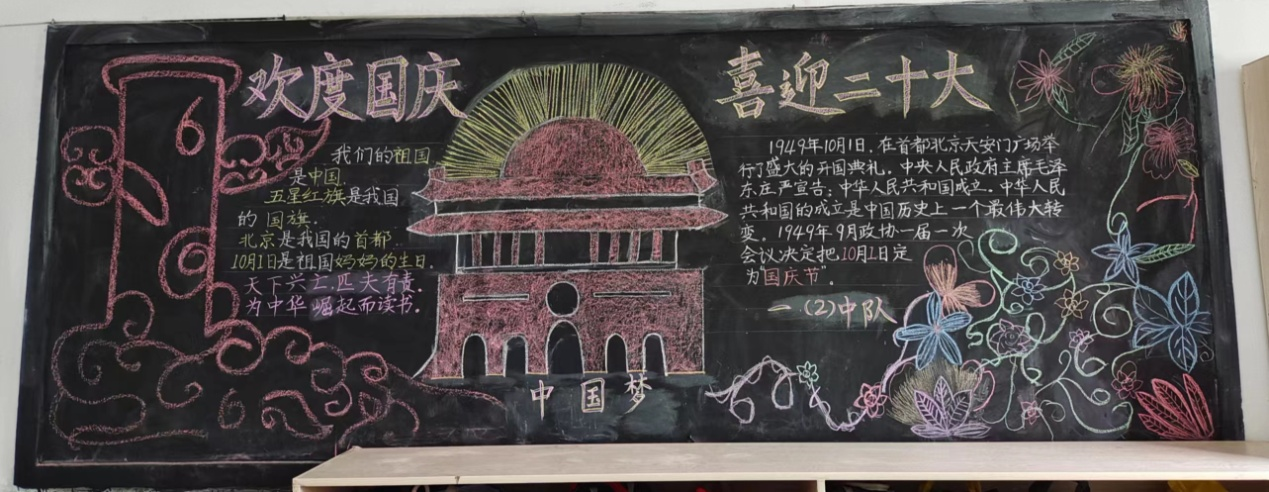 欢度国庆
我们的祖国
是中国
五星红旗是我国
的国旗.
北京是我国的首都.
10月1日是祖国妈妈的生日.
天下兴亡.匹夫有责.
为中华崛起而读书.
中国梦
喜迎二十大
1949年10月1日,在首都北京天安门广场举
行了盛大的开国典礼.中央人民政府主席毛泽
东庄严宣告:中华人民共和国成立.中华人民
共和国的成立是中国历史上一个最伟大转
变。1949年9月政协一届一次
会议决定把10月1日定
为“国庆节”
一.(2)中队